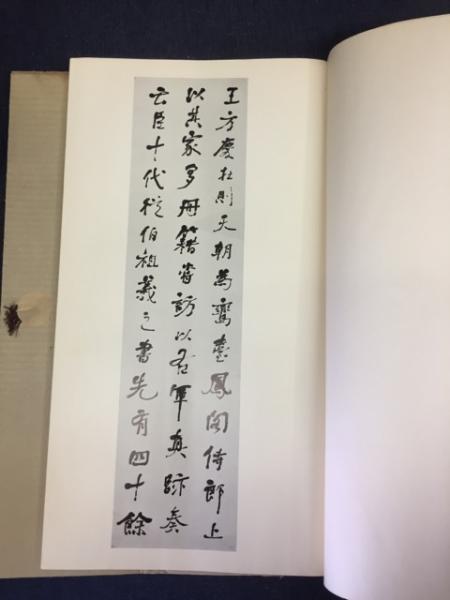 王方慶在則天朝為鸞臺鳳閣侍郎上
以其家多冊籍嘗訪以右軍真跡奏
云臣十代從伯祖羲之書先有四十餘